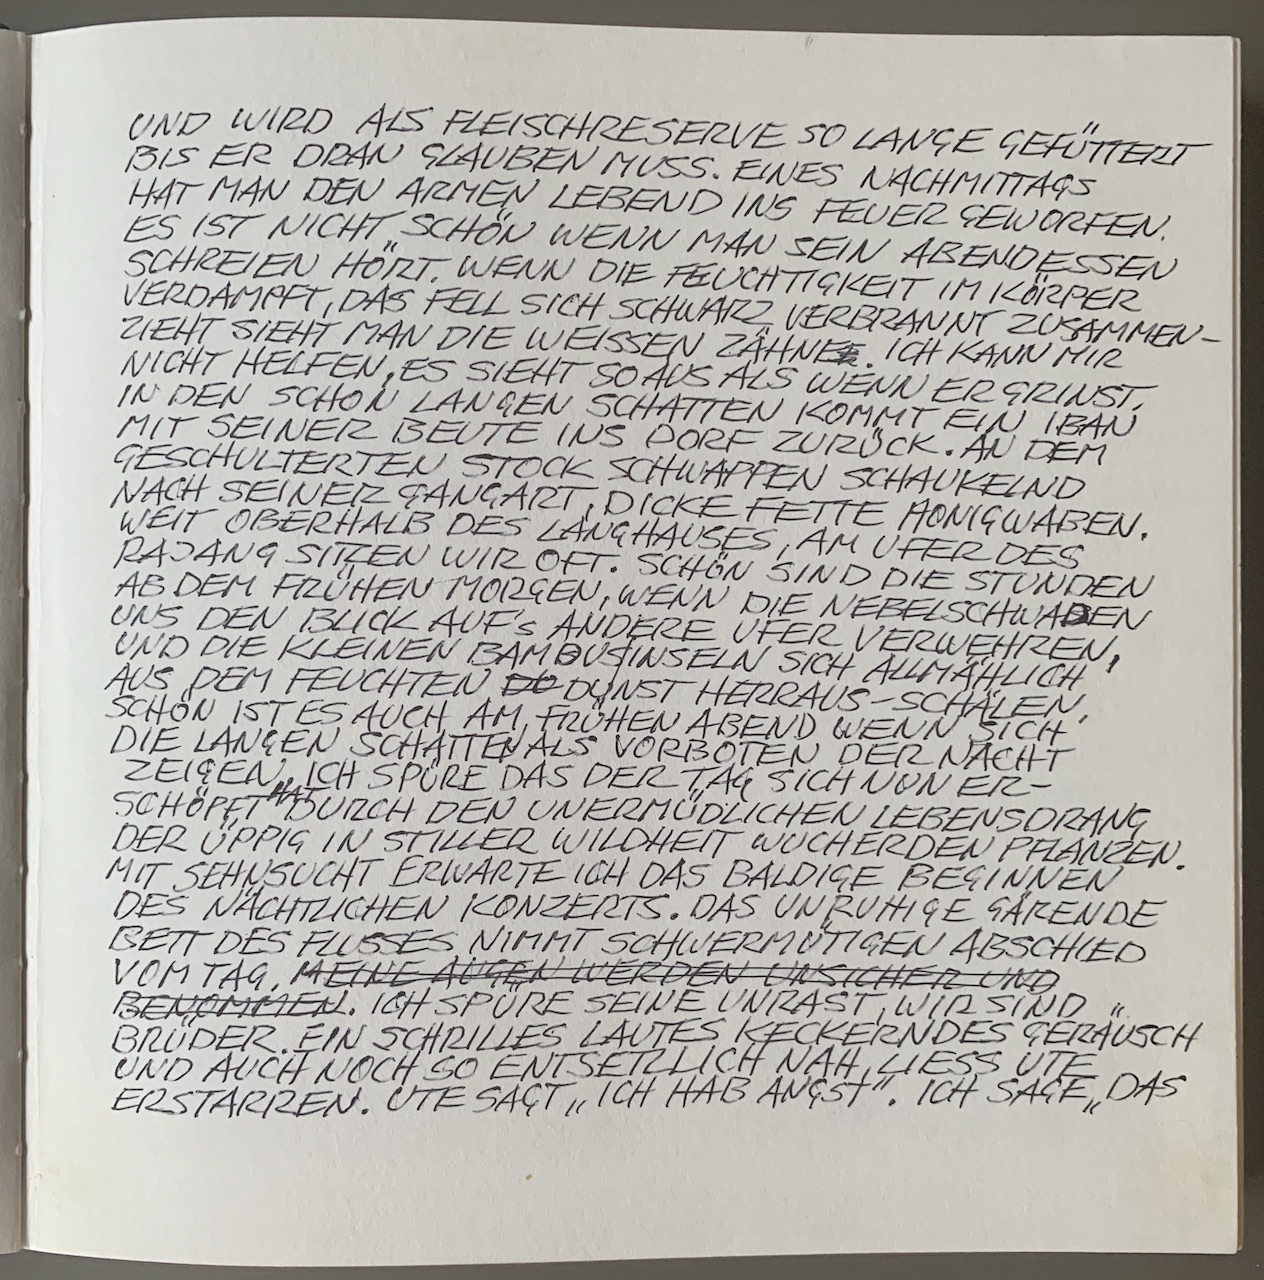 UND WIRD ALS FLEISCHRESERVE SO LANGE GEFÜTTERT
BIS ER DRAN GLAUBEN MUSS. EINES NACHMITTAGS
HAT MAN DEN ARMEN LEBEND INS FEUER GEWORFEN.
ES IST NICHT SCHÖN WENN MAN SEIN ABENDESSEN
SCHREIEN HÖRT. WENN DIE FEUCHTIGKEIT IM KÖRPER
VERDAMPFT, DAS FELL SICH SCHWARZ VERBRANNT ZUSAMMEN-
ZIEHT SIEHT MAN DIE WEISSEN ZÄHNE. ICH KANN MIR
NICHT HELFEN, ES SIEHT SO AUS ALS WENN ER GRINST.
IN DEN SCHON LANGEN SCHATTEN KOMMT EIN IBAN
MIT SEINER BEUTE INS DORF ZURÜCK. AN DEM
GESCHULTERTEN STOCK SCHWAPPEN SCHAUKELND
NACH SEINER GANGART, DICKE FETTE HONIGWABEN.
WEIT OBERHALB DES LANGHAUSES, AM UFER DES
RAJANG SITZEN WIR OFT. SCHÖN SIND DIE STUNDEN
AB DEM FRÜHEN MORGEN, WENN DIE NEBELSCHWADEN
UNS DEN BLICK AUF's ANDERE UFER VERWEHREN,
UND DIE KLEINEN BAMBUSINSELN SICH ALLMÄHLICH
AUS DEM FEUCHTEN DUNST HERRAUS-SCHÄLEN.
SCHÖN IST ES AUCH AM FRÜHEN ABEND WENN SICH
DIE LANGEN SCHATTEN ALS VORBOTEN DER NACHT
ZEIGEN. ICH SPÜRE DAS DER TAG SICH NUN ER-
SCHÖPFT HAT DURCH DEN UNERMÜDLICHEN LEBENSDRANG
DER ÜPPIG IN STILLER WILDHEIT WUCHERDEN PFLANZEN.
MIT SEHNSUCHT ERWARTE ICH DAS BALDIGE BEGINNEN
DES NÄCHTLICHEN KONZERTS. DAS UNRUHIGE GÄRENDE
BETT DES FLUSSES NIMMT SCHWERMÜTIGEN ABSCHIED
VOM TAG. MEINE AUGEN WERDEN UNSICHER UND
BENOMMEN. ICH SPÜRE SEINE UNRAST, WIR SIND
BRÜDER. EIN SCHRILLES LAUTES KECKERNDES GERÄUSCH
UND AUCH NOCH SO ENTSETZLICH NAH, LIESS UTE
ERSTARREN. UTE SAGT „ICH HAB ANGST". ICH SAGE „DAS